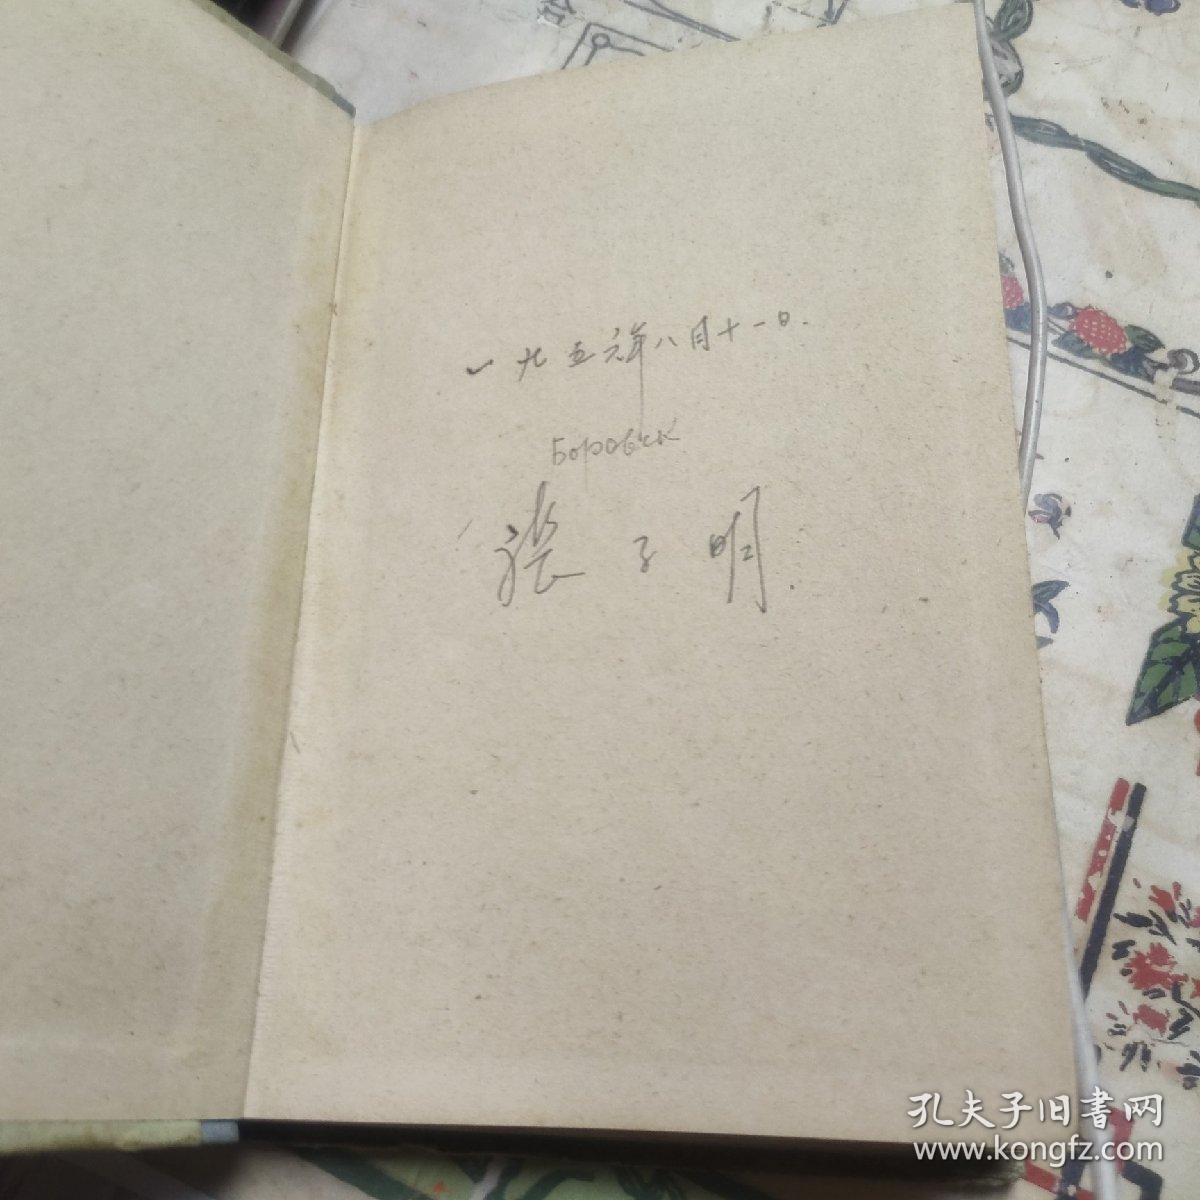 一九五六年八月十一日.
Боровск
张子明.
孔夫子旧書网
www.kongfz.com